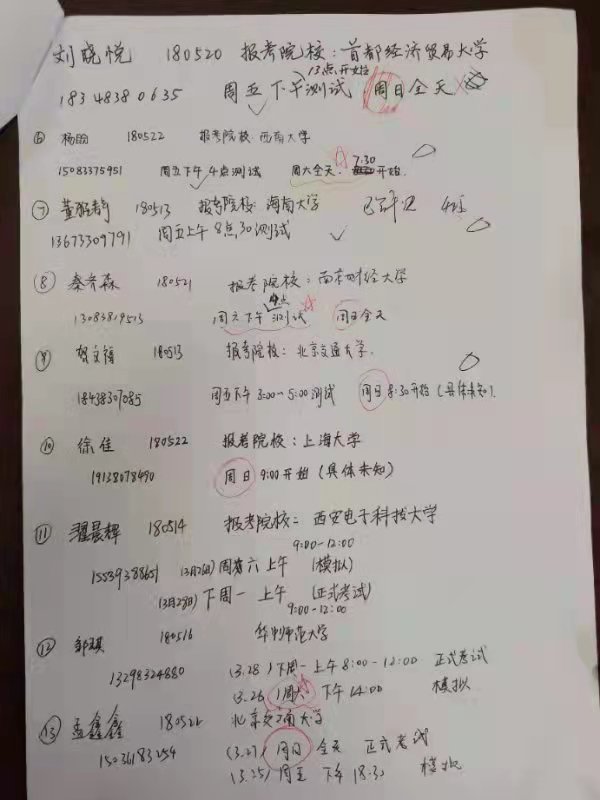 刘晓悦 180520 报考院校:首都经济贸易大学
13点开始
18348380635 周五下午测试 周日全天
⑥ 杨昀 180522 报考院校:西南大学
15083375951 周五下午4点测试 周六全天. 7:30 开始.
⑦ 180513 报考院校:海南大学
13673309791 周五上午8点30测试
⑧ 秦齐森 180521 报考院校:南京财经大学
4点
13083819513 周六下午 测试 周日全天
⑨ 贺文福 180513 报考院校:北京交通大学.
18438307085 周五下午3:00-5:00测试 周日8:30开始(具体未知).
⑩ 徐佳 180522 报考院校:上海大学
19138078490 周日9:00开始(具体未知)
⑪ 翟晨辉 180514 报考院校:西安电子科技大学
9:00-12:00
15539388651 周六上午 (模拟)
(3月28日)下周一上午 (正式考试)
9:00-12:00
⑫ 邹琪 180516 华中师范大学
13298324880 (3.28)下周一上午8:00-12:00 正式考试
(3.26)周六 下午14:00 模拟
⑬ 孟鑫鑫 180522 北京交通大学
15036183254 (3.27)周日 全天 正式考试
(3.25)周五 下午18:30 模拟